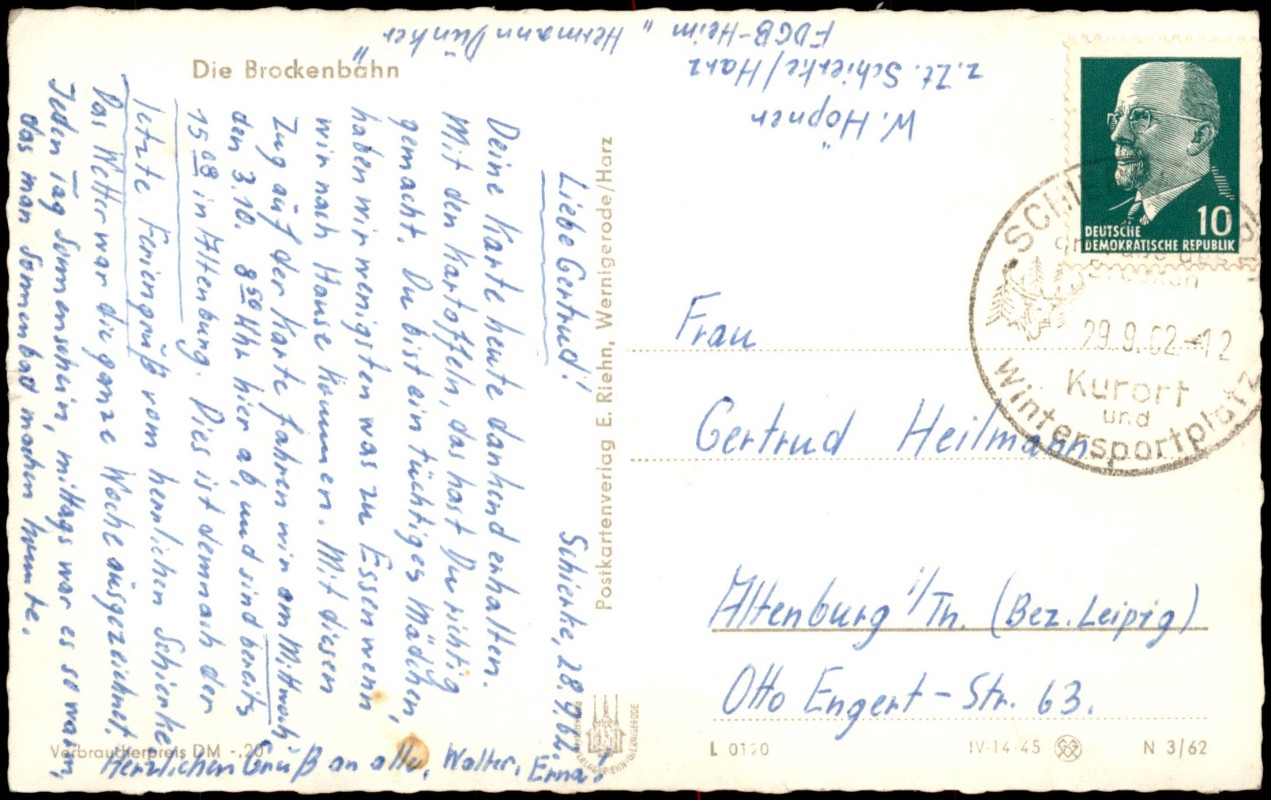 Die Brockenbahn
W. Höpner
z.Zt. Schierke/Harz
FDGB-Heim "Hermann Dünker"
Schierke, 28.9.62.
Liebe Gertrud!
Deine Karte heute dankend erhalten.
Mit den Kartoffeln, das hast Du richtig
gemacht. Du bist ein tüchtiges Mädchen,
haben wir wenigsten was zu Essen wenn
wir nach Hause kommen. Mit diesen
Zug auf der Karte fahren wir am Mittwoch
den 3.10. 8⁵⁰ Uhr hier ab, und sind bereits
15⁰⁸ in Altenburg. Dies ist demnach der
letzte Feriengruß vom herrlichen Schierke
Das Wetter war die ganze Woche ausgezeichnet.
Jeden Tag Sonnenschein, mittags war es so warm,
das man Sonnenbad machen konnte.
Herzlichen Gruß an alle, Walter, Erna!
Verbraucherpreis DM -.20
Postkartenverlag E. Riehn, Wernigerode/Harz
10
DEUTSCHE
DEMOKRATISCHE REPUBLIK
29.9.62-12
Kurort
und
Wintersportplatz
Frau
Gertrud Heilmann
Altenburg i/Tn. (Bez. Leipzig)
Otto Engert-Str. 63.
L 0120
IV-14-45
N 3/62